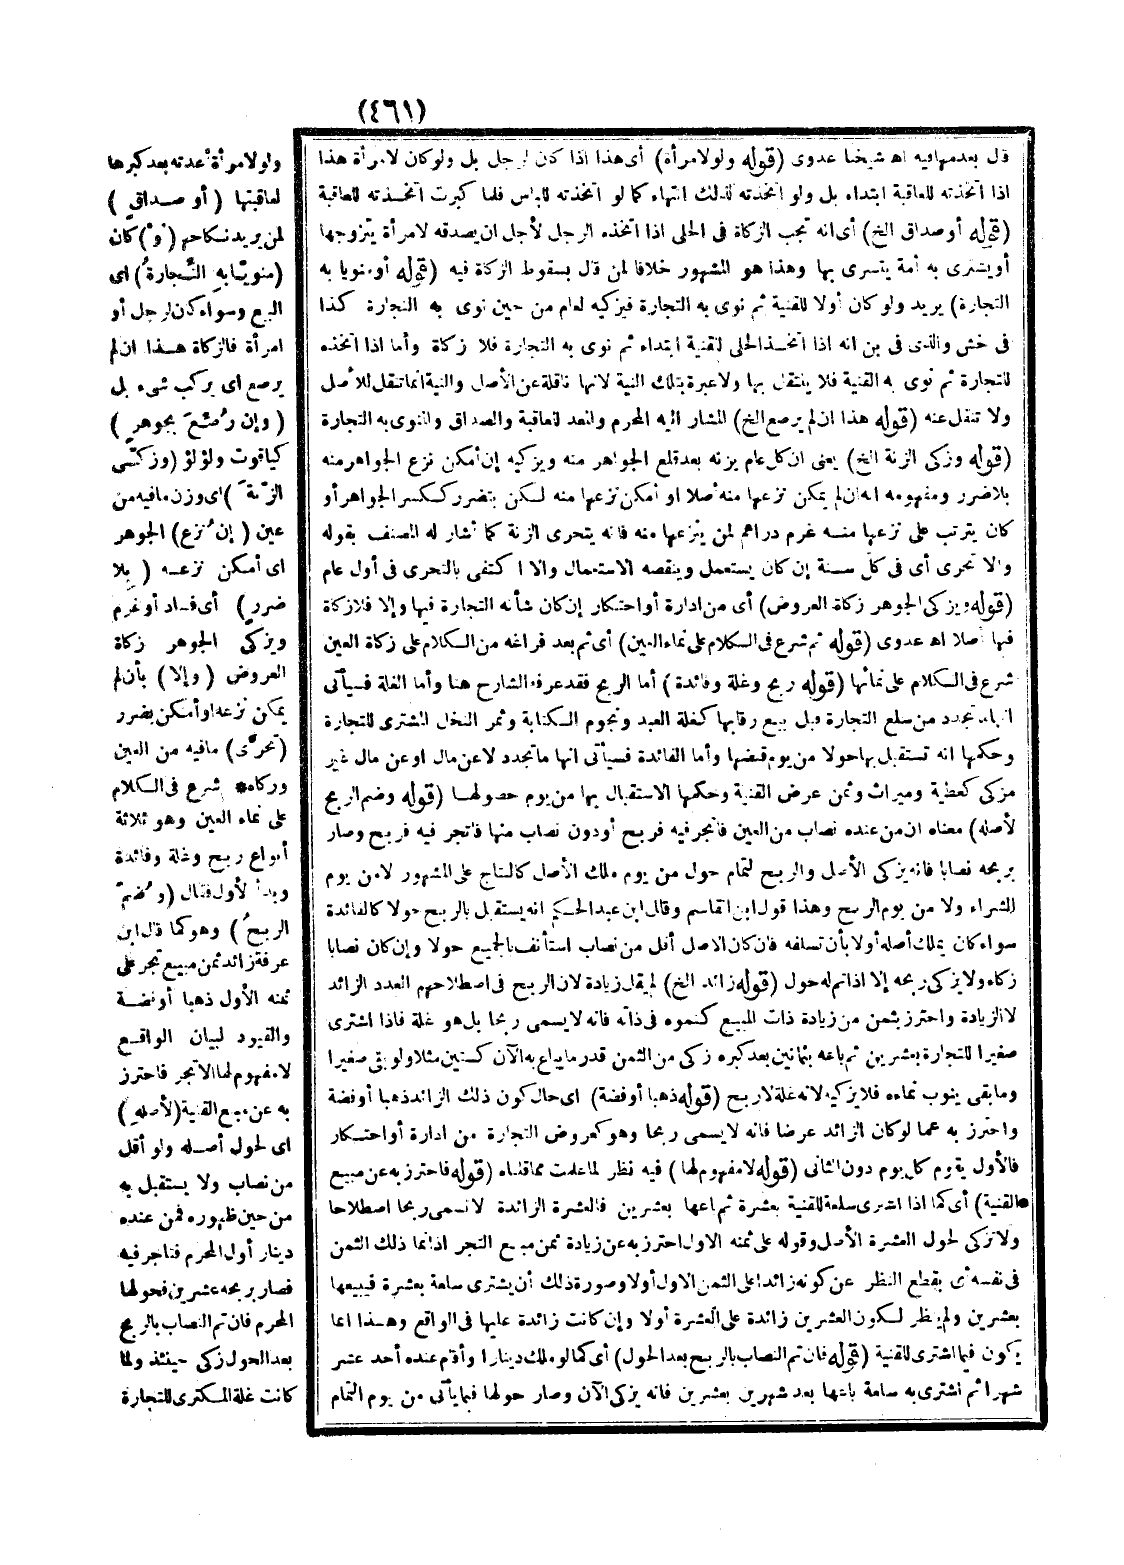 (٤٦١)
قال بعد مهافيه اه شيخنا عدوى (قوله ولولامرأة) أى هذا اذا كان لرجل بل ولو كان لامرأة هذا
اذا اتخذته للعاقبة ابتداء بل ولو اتخذته لذلك انتهاء كما لو اتخذته للباس فلما كبرت اتخذته للعاقبة
(قوله أو صداق الخ) أى انه تجب الزكاة فى الحلى اذا اتخذه الرجل لأجل ان يصدقه لامرأة يتزوجها
أو يشترى به أمة يتسرى بها وهذا هو المشهور خلافا لمن قال بسقوط الزكاة فيه (قوله أو منويا به
التجارة) يريد ولو كان أولا للقنية ثم نوى به التجارة فيزكيه لعام من حين نوى به التجارة كذا
فى خش والذى فى بن انه اذا اتخذ الحلى للقنية ابتداء ثم نوى به التجارة فلا زكاة وأما اذا اتخذه
للتجارة ثم نوى به القنية فلا ينتقل بها ولا عبرة بتلك النية لانها ناقلة عن الأصل والنية انما تنقل للأصل
ولا تنقل عنه (قوله هذا ان لم يرصع الخ) المشار اليه المحرم والمعد للعاقبة والصداق والمنوى به التجارة
(قوله وزكى الزنة الخ) يعنى ان كل عام يزنه بعد قلع الجواهر منه ويزكيه إن أمكن نزع الجواهر منه
بلا ضرر ومفهومه انه ان لم يمكن نزعها منه أصلا او أمكن نزعها منه لكن بتضرر ككسر الجواهر أو
كان يترتب على نزعها منه غرم دراهم لمن ينزعها منه فانه يتحرى الزنة كما أشار له المصنف بقوله
والا تحرى أى فى كل سنة إن كان يستعمل وينقصه الاستعمال والا اكتفى بالتحرى فى أول عام
(قوله ويزكى الجوهر زكاة العروض) أى من ادارة أو احتكار إن كان شأنه التجارة فيها وإلا فلا زكاة
فيها أصلا اه عدوى (قوله ثم شرع فى الكلام على نماء العين) أى ثم بعد فراغه من الكلام على زكاة العين
شرع فى الكلام على نمائها (قوله ربح وغلة وفائدة) أما الربح فقد عرفه الشارح هنا وأما الغلة فسيأتى
انها ما تجدد من سلع التجارة قبل بيع رقابها كغلة العبد ونجوم الكتابة وثمر النخل المشترى للتجارة
وحكمها انه تستقبل بها حولا من يوم قبضها وأما الفائدة فسيأتى انها ما تجدد لا عن مال او عن مال غير
مزكى كعطية وميراث وثمن عرض القنية وحكمها الاستقبال بها من يوم حصولها (قوله وضم الربح
لأصله) معناه ان من عنده نصاب من العين فاتجر فيه فربح أو دون نصاب منها فاتجر فيه فربح وصار
بربحه نصابا فانه يزكى الأصل والربح لتمام حول من يوم ملك الأصل كالنتاج على المشهور لا من يوم
الشراء ولا من يوم الربح وهذا قول ابن القاسم وقال ابن عبد الحكم انه يستقبل بالربح حولا كالفائدة
سواء كان يملك أصله أولا بأن تسلفه فان كان الاصل أقل من نصاب استأنف بالجميع حولا وإن كان نصابا
زكاه ولا يزكى ربحه إلا اذا تم له حول (قوله زائد الخ) لم يقل زيادة لان الربح فى اصطلاحهم العدد الزائد
لا الزيادة واحترز بثمن من زيادة ذات المبيع كنموه فى ذاته فانه لا يسمى ربحا بل هو غلة فاذا اشترى
صغيرا للتجارة بعشرين ثم باعه بثمانين بعد كبره زكى من الثمن قدر ما يباع به الآن كستين مثلا ولو بقى صغيرا
وما بقى ينوب نماءه فلا يزكيه لانه غلة لا ربح (قوله ذهبا أو فضة) اى حال كون ذلك الزائد ذهبا أو فضة
واحترز به عما لو كان الزائد عرضا فانه لا يسمى ربحا وهو كعروض التجارة من ادارة أو احتكار
فالأول يقوم كل يوم دون الثانى (قوله لا مفهوم لها) فيه نظر لما علمت مما قلناه (قوله فاحترز به عن مبيع
القنية) أى كما اذا اشترى سلعة للقنية بعشرة ثم باعها بعشرين فالعشرة الزائدة لا تسمى ربحا اصطلاحا
ولا تزكى لحول العشرة الأصل وقوله على ثمنه الاول احترز به عن زيادة ثمن مبيع التجر اذا نما ذلك الثمن
فى نفسه أى بقطع النظر عن كونه زائدا على الثمن الاول أولا وصورة ذلك أن يشترى سلعة بعشرة فيبيعها
بعشرين ولم ينظر لكون العشرين زائدة على العشرة أولا وإن كانت زائدة عليها فى الواقع وهذا انما
يكون فيما اشترى للقنية (قوله فان تم النصاب بالربح بعد الحول) أى كما لو ملك دينارا وأقام عنده أحد عشر
شهرا ثم اشترى به سلعة باعها بعد شهرين بعشرين فانه يزكى الآن وصار حولها فيما يأتى من يوم التمام
ولو لامرأة أعدته بعد كبرها
لعاقبتها (أو صداق)
لمن يريد نكاحها (و) كان
(منويا به التجارة) اى
البيع وسواء كان لرجل أو
امرأة فالزكاة هذا ان لم
يرصع اى يركب شىء بل
(وإن رصع بجوهر)
كياقوت ولؤلؤ (وزكى
الزنة) اى وزن ما فيه من
عين (إن نزع) الجوهر
اى أمكن نزعه (بلا
ضرر) أى فساد أو غرم
ويزكى الجوهر زكاة
العروض (وإلا) بأن لم
يمكن نزعه او أمكن بضرر
(تحرى) ما فيه من العين
وزكاه* ثم شرع فى الكلام
على نماء العين وهو ثلاثة
أنواع ربح وغلة وفائدة
وبدأ لأول فقال (وضم
الربح) وهو كما قال ابن
عرفة زائد ثمن مبيع تجر على
ثمنه الأول ذهبا أو فضة
والقيود لبيان الواقع
لا مفهوم لها الا تجر فاحترز
به عن مبيع القنية (لأصله)
اى لحول أصله ولو أقل
من نصاب ولا يستقبل به
من حين ظهوره فمن عنده
دينار أول المحرم فتاجر فيه
فصار بربحه عشرين فحولها
المحرم فان تم النصاب بالربح
بعد الحول زكى حينئذ ولما
كانت غلة المكترى للتجارة